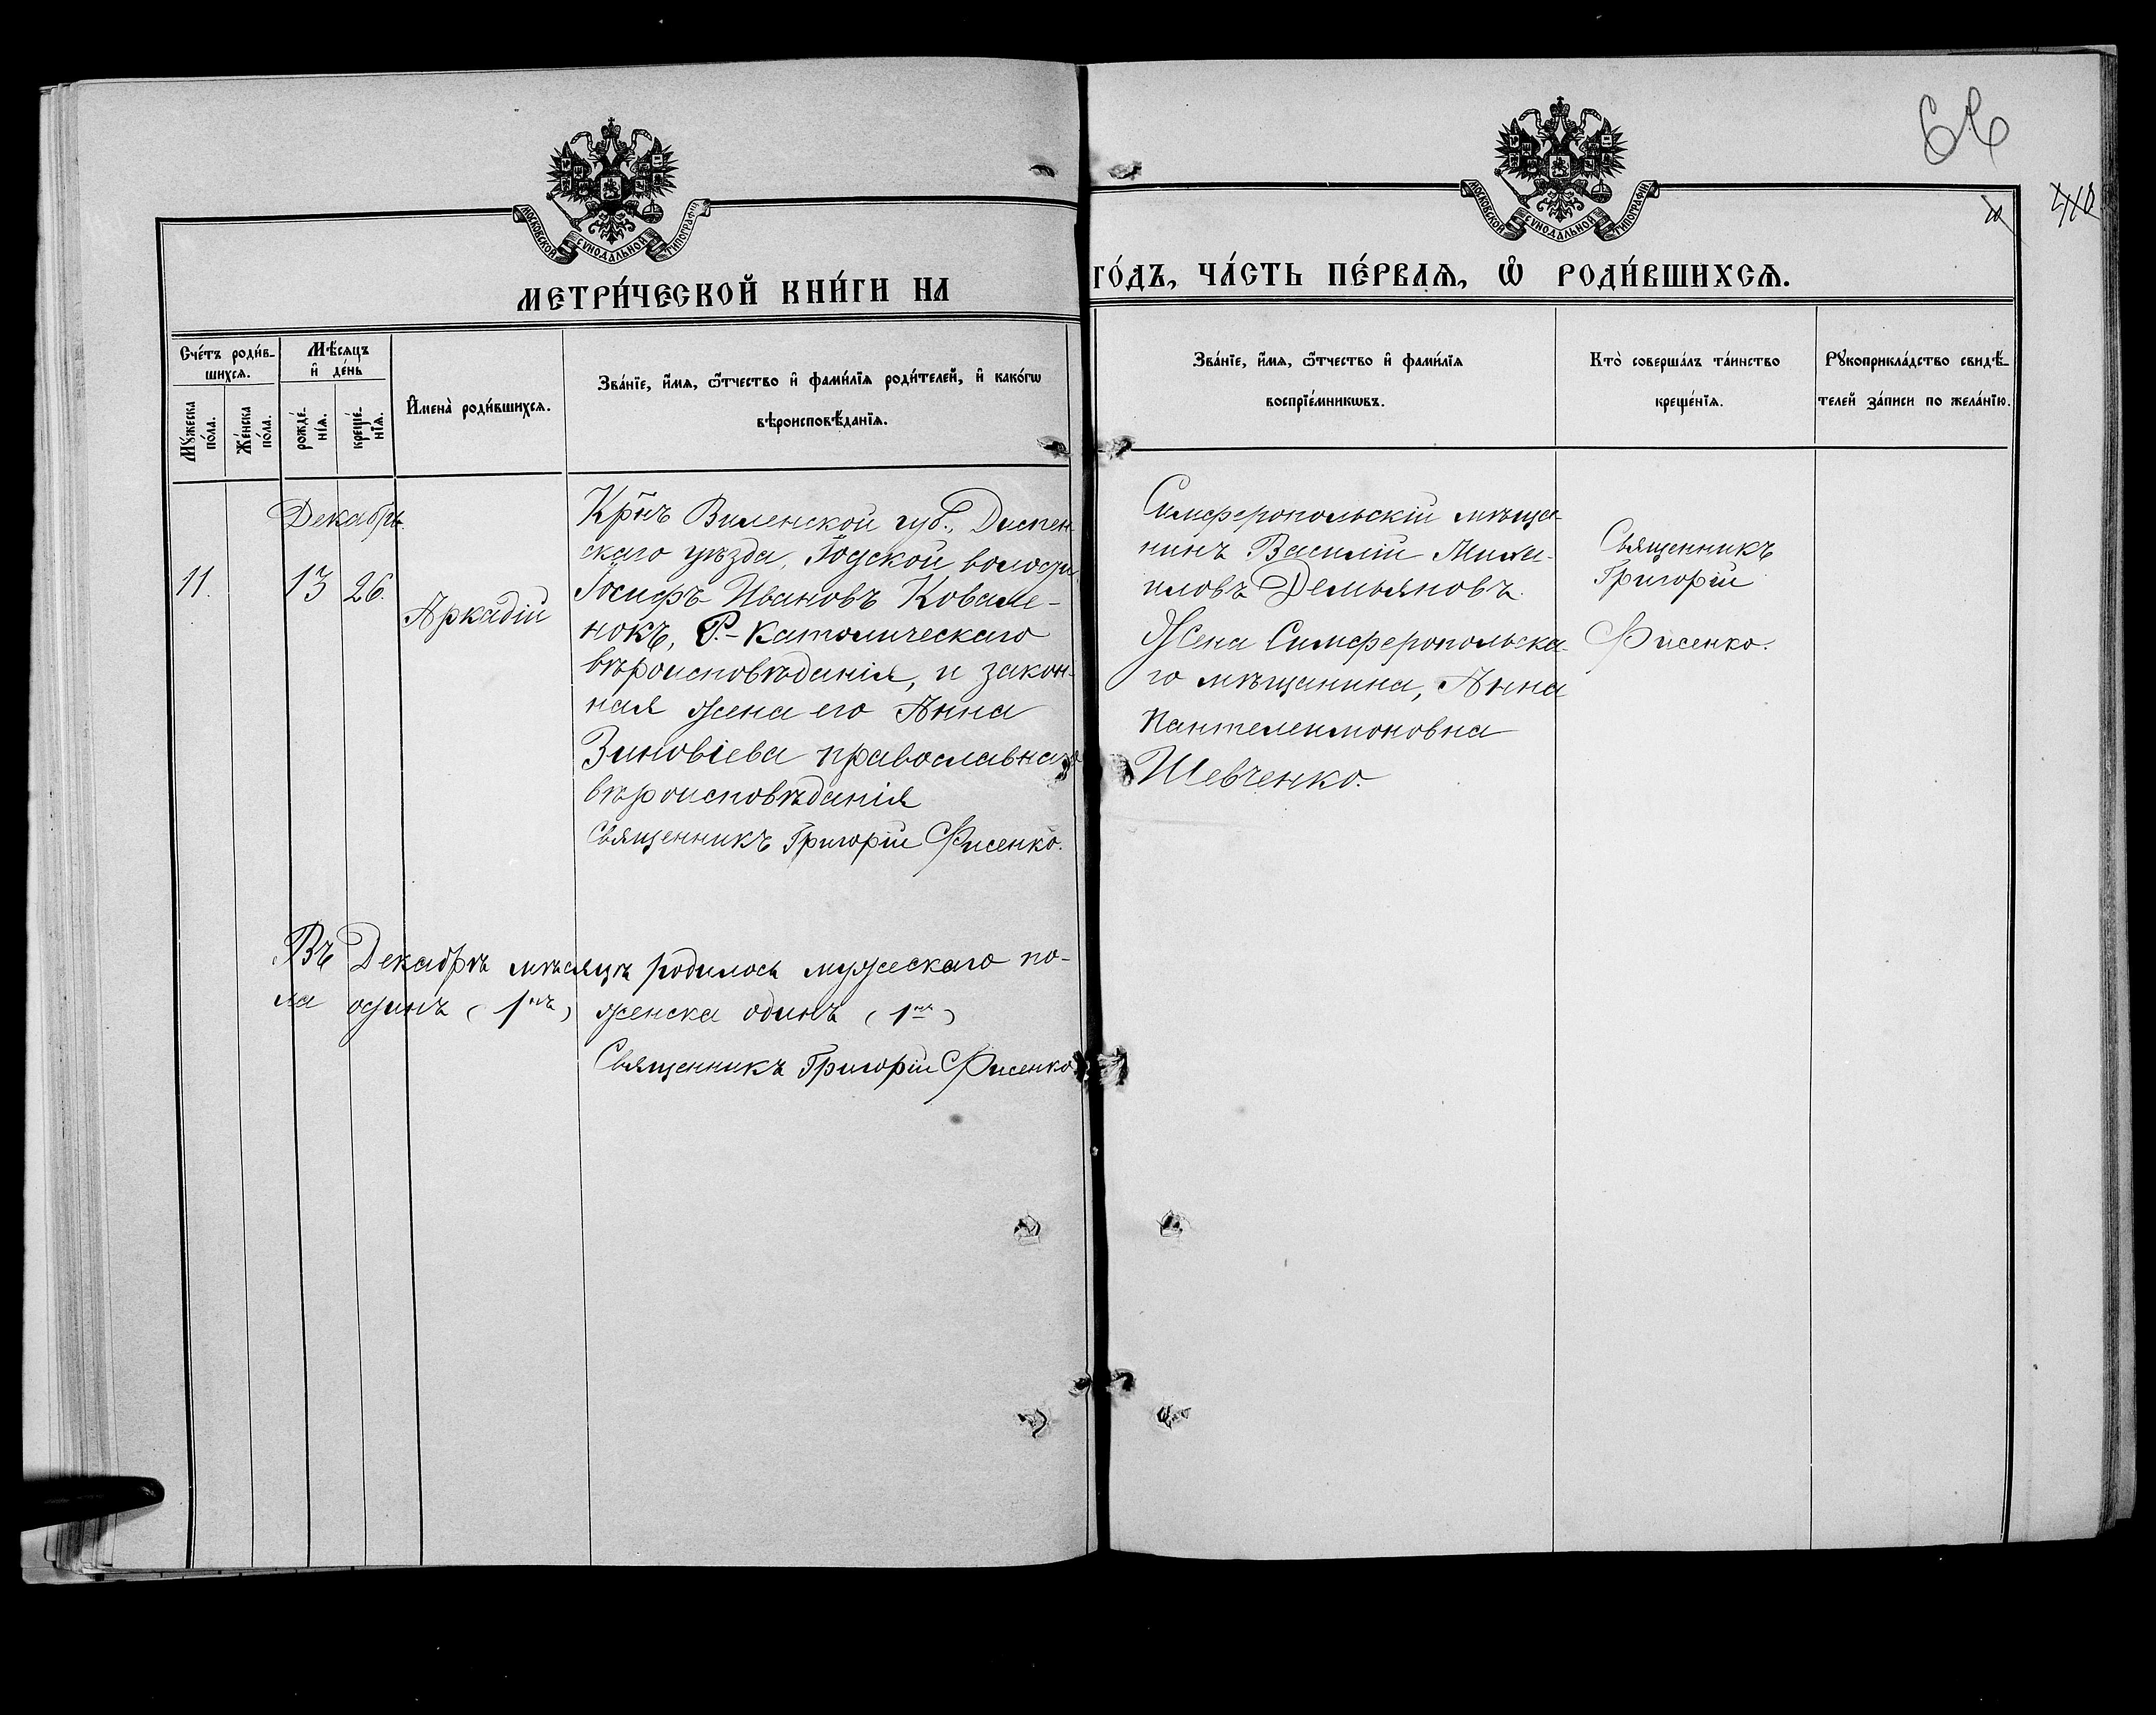 66
МОСКОВСКОЙ СѴНОДАЛЬНОЙ ТИПОГРАФІИ
МОСКОВСКОЙ СѴНОДАЛЬНОЙ ТИПОГРАФІИ
МЕТРИ́ЧЕСКОЙ КНИ́ГИ НА
ГО́ДЪ, ЧА́СТЬ ПЕ́РВАѦ, Ѡ҆ РОДИ́ВШИХСѦ.
Сче́тъ роди́в-
шихсѧ.
Мꙋ́жеска по́ла.
Же́нска по́ла.
Мѣ́сѧцъ
и҆ де́нь
рожде́-
нїѧ.
креще́-
нїѧ.
И҆мена̀ роди́вшихсѧ.
Зва́нїе, и҆́мѧ, ѻ҆́тчество и҆ фами́лїѧ роди́телей, и҆ како́гѡ
вѣроисповѣ́данїѧ.
Зва́нїе, и҆́мѧ, ѻ҆́тчество и҆ фами́лїѧ
воспрїе́мникѡвъ.
Кто̀ соверша́лъ та́инство
креще́нїѧ.
Рꙋкоприкла́дство свидѣ́-
телей за́писи по жела́нїю.
Декабрь.
11.
13
26.
Аркадій
Крнъ Виленской губ., Диснен
скаго уѣзда, волости
Іосифъ Ивановъ Ковале-
нокъ, Р.-Католическаго
вѣроисповѣданія, и закон-
ная жена его Анна
Зиновіева православнаго
вѣроисповѣданія
Священникъ Григорій Фисенко.
Симферопольскій мѣща-
нинъ Василій Миха-
иловъ Демьяновъ.
Жена Симферопольска-
го мѣщанина, Анна
Пантелеимоновна
Шевченко.
Священникъ
Григорій
Фисенко.
Въ Декабрѣ мѣсяцѣ родилось мужескаго по-
ла одинъ (1нъ) женска одинъ (1нъ)
Священникъ Григорій Фисенко